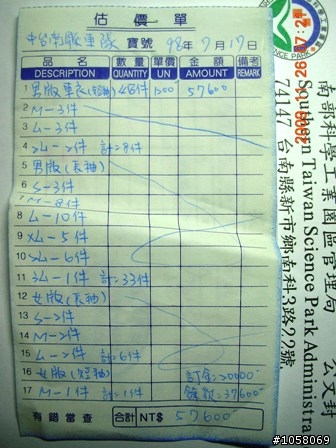 估價單
中台南歐車隊 寶號 98年7月17日
品名 數量 單價 金額 備考
DESCRIPTION QUANTITY UN AMOUNT REMARK
1 男版車衣(短袖) 48件 1200 57600
2 M-3件
3 L-3件
4 2L-2件 計=8件
5 男版(長袖)
6 S-3件
7 M-8件
8 L-10件
9 XL-5件
10 2L-6件
11 3L-1件 計=33件
12 女版(長袖)
13 S-2件
14 M-2件
15 L-2件 計=6件
16 女版(短袖) 訂金=20000
17 M-1件 計=1件 餘款=37600
有錯當查 合計 NT$ 57600
南部科學工業園區管理局 公文封
Southern Taiwan Science Park Administra
74147 台南縣新市鄉南科3路22號
SCIENCE PARK
#1058069